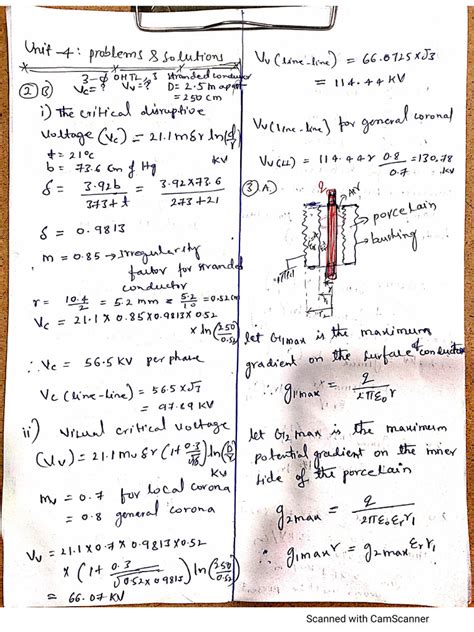 Unit-4: problems & solutions
② B) 3-ϕ OHTL, 3 stranded conductor
Vc=? Vv=? D= 2.5 m apart
= 250 cm
i) The critical disruptive
Voltage (Vc) = 21.1 m δ r ln(d/r) KV
t = 21°C
b = 73.6 Cm of Hg
δ = 3.92b / 373+t = 3.92×73.6 / 273+21
δ = 0.9813
m = 0.85 → Irregularity
factor for stranded
conductor
r = 10.4/2 = 5.2 mm = 5.2/10 = 0.52 cm
Vc = 21.1 × 0.85×0.9813×0.52
× ln(250/0.52)
∴ Vc = 56.5 KV per phase
Vc (line-line) = 56.5×√3
= 97.89 KV
ii) Visual critical voltage
(Vv) = 21.1 mv δ r (1+ 0.3/√δr) ln(D/r) KV
mv = 0.7 for local corona
= 0.8 general corona
Vv = 21.1 × 0.7 × 0.9813×0.52
× (1+ 0.3/√0.52×0.9813) ln(250/0.52)
= 66.07 KV
Vv (line-line) = 66.0725×√3
= 114.44 KV
Vv (line-line) for general corona
Vv (LL) = 114.44 × 0.8/0.7 = 130.78 KV
③ A)
porcelain
bushing
let G1max is the maximum
gradient on the surface of conductor
g1max = q / 2πε0r
let G2 max is the maximum
potential gradient on the inner
side of the porcelain
g2max = q / 2πε0εrr1
∴ g1max r = g2max εr r1
Scanned with CamScanner